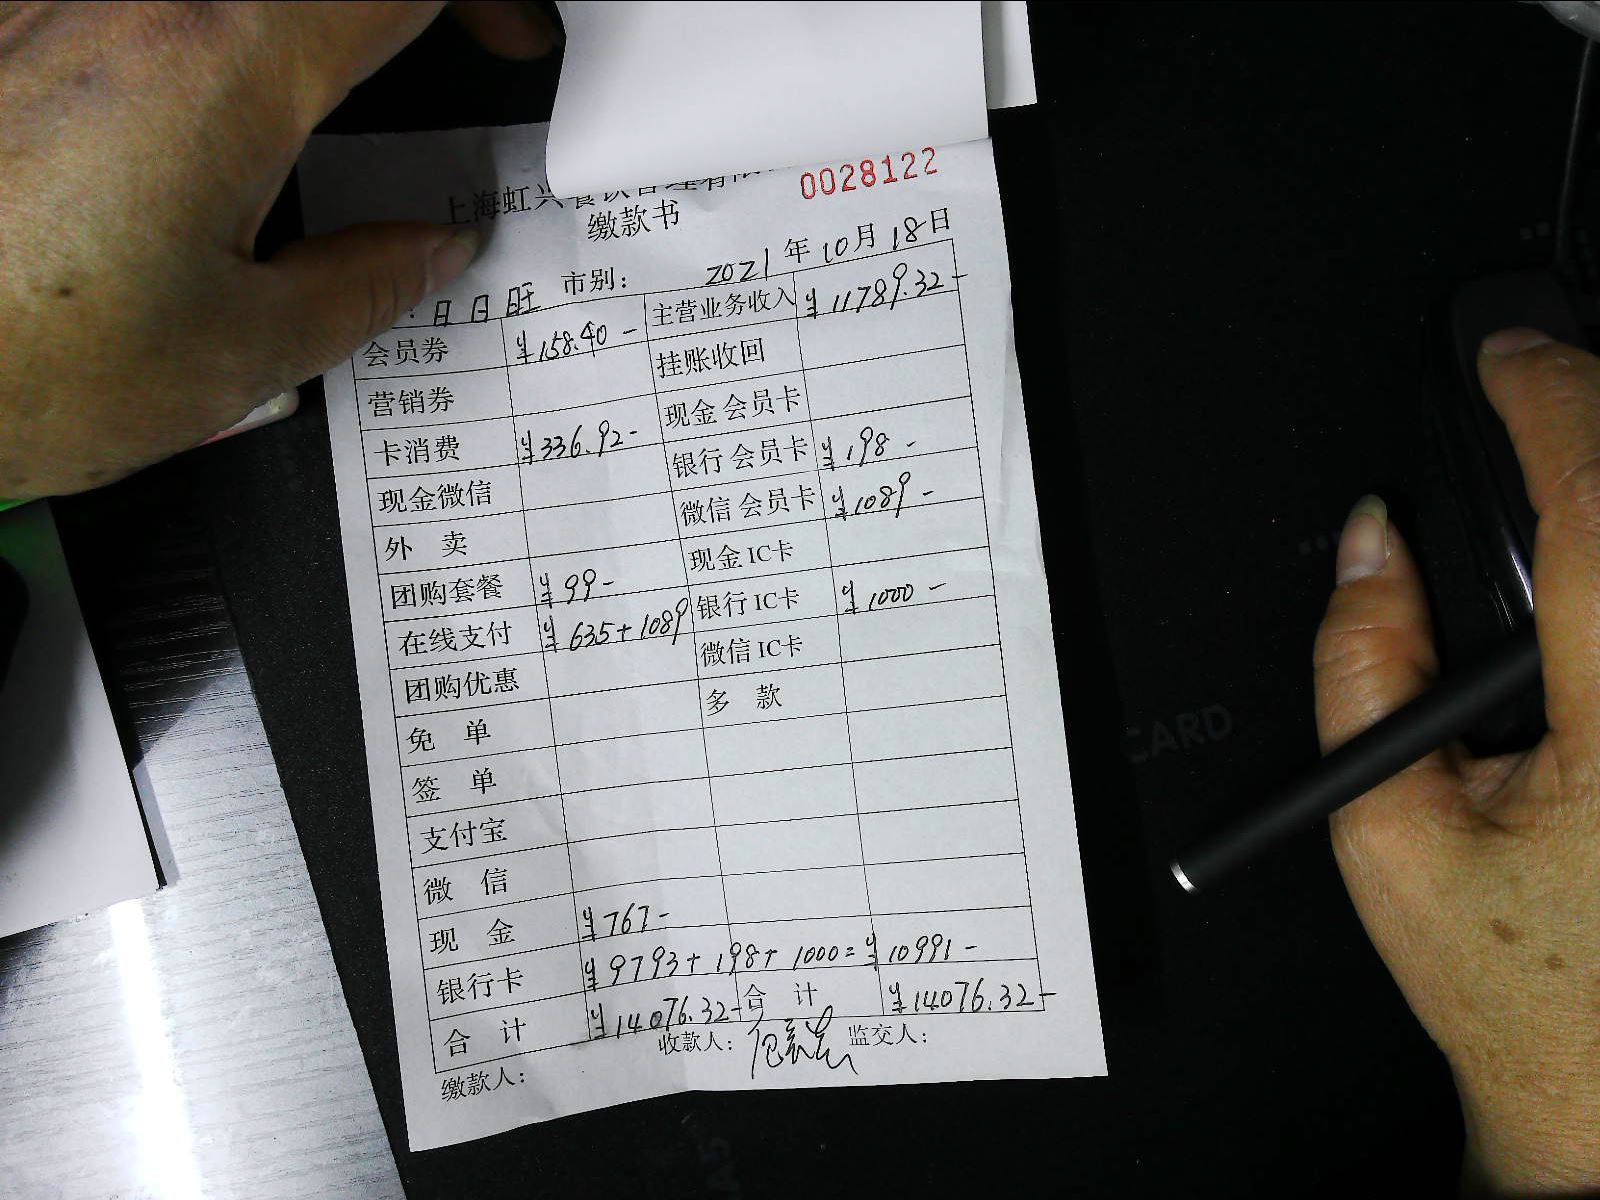 0028122
上海虹兴餐饮管理有限
缴款书
: 日日旺 市别: 2021年10月18日
会员券 ¥158.40- 主营业务收入 ¥11789.32-
营销券 挂账收回
卡消费 ¥336.92- 现金会员卡
现金微信 银行会员卡 ¥198-
外 卖 微信会员卡 ¥1089-
团购套餐 ¥99- 现金IC卡
在线支付 ¥635+1089 银行IC卡 ¥1000-
团购优惠 微信IC卡
免 单 多 款
签 单
支付宝
微 信
现 金 ¥767-
银行卡 ¥9793+198+1000=¥10991-
合 计 ¥14076.32- 合 计 ¥14076.32-
缴款人: 收款人: 监交人:
CARD